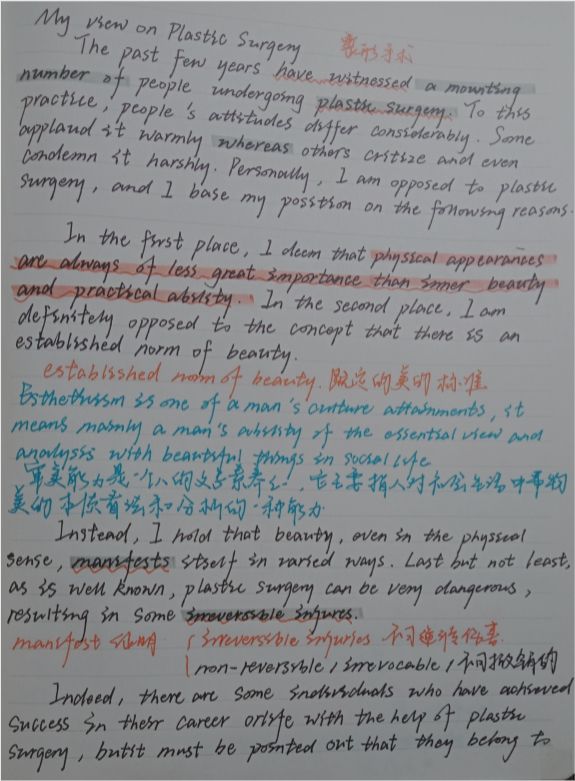 My view on Plastic Surgery
整形手术
The past few years have witnessed a mounting
number of people undergoing plastic surgery. To this
practice, people's attitudes differ considerably. Some
applaud it warmly whereas others critize and even
condemn it harshly. Personally, I am opposed to plastic
surgery, and I base my position on the following reasons.
In the first place, I deem that physical appearances
are always of less great importance than inner beauty
and practical ability. In the second place, I am
definitely opposed to the concept that there is an
established norm of beauty.
established norm of beauty. 既定的美的标准
Esthetuism is one of a man's culture attainments, it
means mainly a man's ability of the essential view and
analysis with beautiful things in social life
审美能力是一个人的文学素养之一, 它主要指人对社会生活中事物
美的本质看法和分析的一种能力.
Instead, I hold that beauty, even in the physical
sense, manifests itself in varied ways. Last but not least,
as is well known, plastic surgery can be very dangerous,
resulting in some irreversible injures.
manifest 证明 irreversible injuries 不可逆转伤害
non-reversible, irrevocable, 不可撤销的
Indeed, there are some individuals who have achieved
success in their career orlife with the help of plastic
surgery, butit must be pointed out that they belong to